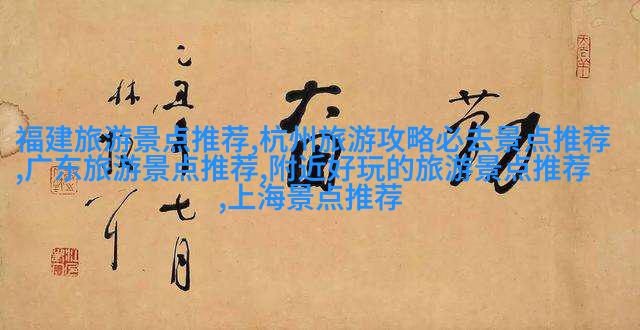 福建旅游景点推荐,杭州旅游攻略必去景点推荐
,广东旅游景点推荐,附近好玩的旅游景点推荐
,上海景点推荐
勤奋
乙丑年七月
林散耳